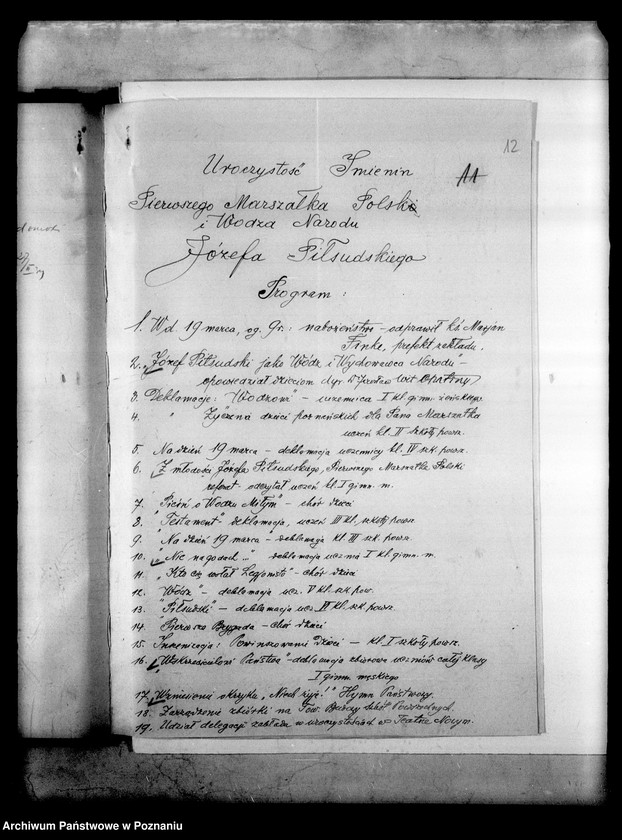 12
11
Uroczystość Imienin
Pierwszego Marszałka Polski
i Wodza Narodu
Józefa Piłsudskiego
Program:
1. W d. 19 marca, og. 9r.: nabożeństwo - odprawił ks. Marjan
Finke, prefekt zakładu.
2. "Józef Piłsudski jako Wódz i Wychowawca Narodu" -
opowiedział dzieciom dyr. Wit
3. Deklamacje: "Wodzowi" - uczenica I kl. gimn. żeńskiego.
4. " Życzenia dzieci poznańskich dla Pana Marszałka
uczeń kl. IV szkoły powsz.
5. Na dzień 19 marca - deklamacja uczennicy kl. IV szk. powsz.
6. "Z młodości Józefa Piłsudskiego, Pierwszego Marszałka Polski
referat odczytał uczeń kl. I gimn. m.
7. "Pieśń o Wodzu Miłym" - chór dzieci
8. "Testament" deklamacja, uczeń III kl. szkoły powsz.
9. "Na dzień 19 marca - deklamacja kl. III szk. powsz.
10. "Nie na godach..." deklamacja ucznia I kl. gimn. m.
11. "Kto cię wołał Legjonisto" - chór dzieci
12. "Wódz" - deklamacja ucz. V kl. szk. pow.
13. "Piłsudski" - deklamacja ucz. kl. szk. powsz.
14. "Pierwsza Brygada - chór dzieci
15. Inscenizacja: Powinszowania Dzieci - kl. I szkoły powsz.
16. "Wskrzesicielowi Państwa" - deklamacja zbiorowa uczniów całej klasy
I gimn. męskiego
17. Wzniesienie okrzyku, "Niech żyje!" Hymn Państwowy.
18. Zarządzenie zbiórki na Tow. Budowy szkół Powszechnych.
19. Udział delegacji zakładu w uroczystościach w Teatrze Nowym.
Archiwum Państwowe w Poznaniu